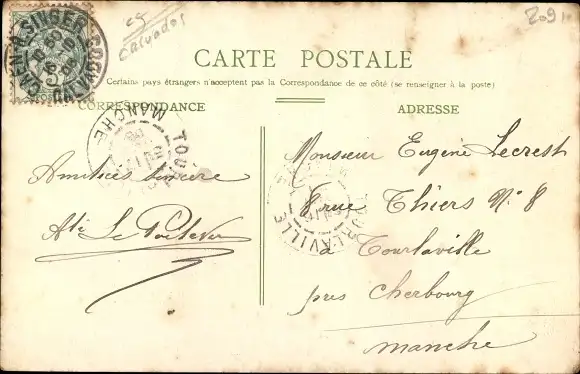 Calvados
CARTE POSTALE
Certains pays étrangers n'acceptent pas la Correspondance de ce côté (se renseigner à la poste)
CORRESPONDANCE
ADRESSE
MANCHE
Amitiées sincère
Monsieur Eugène Lecrest
8 rue Thiers N° 8
à Tourlaville
près Cherbourg
manche
TOURLAVILLE